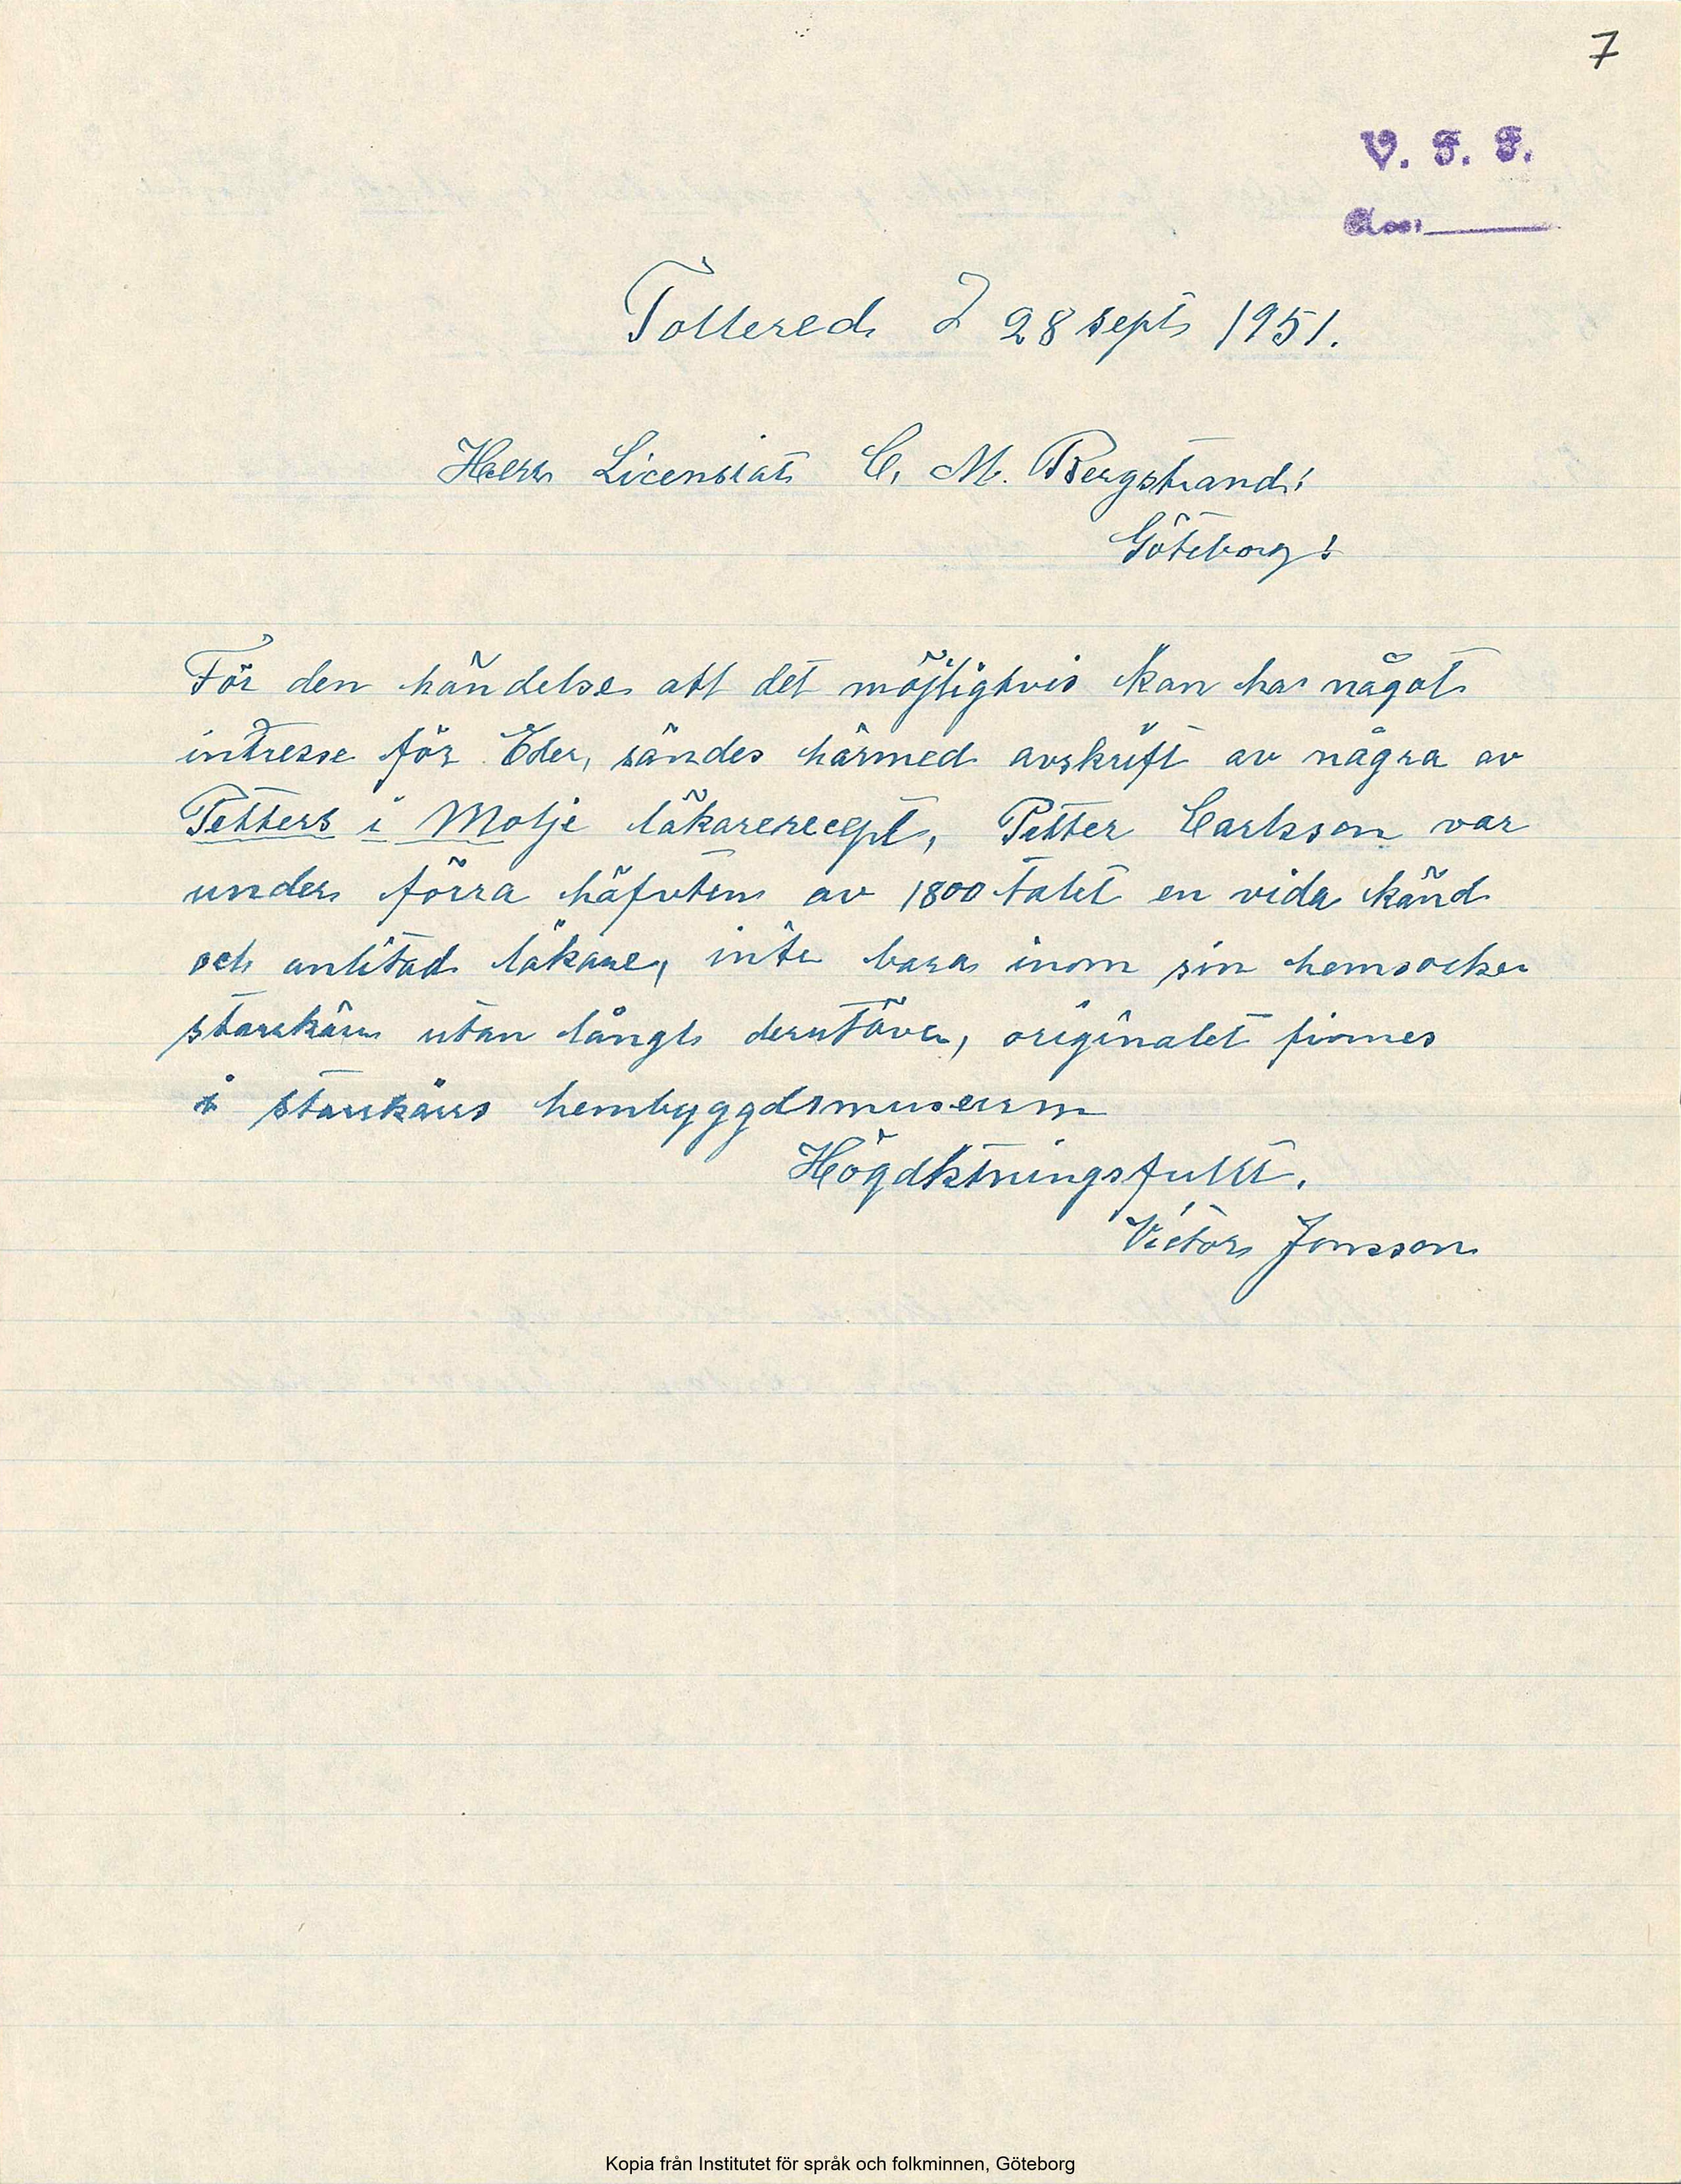 7
V. F. F.
Acc:
Tollered d 28 sept 1951.
Herr Licensiat C. M. Bergstrand!
Göteborg!
För den händelse att det möjligtvis kan ha något
intresse för Eder, sändes härmed avskrift av några av
Petters i Molje läkarerecept, Petter Carlsson var
under förra häfvten av 1800 talet en vida känd
och anlitad läkare, inte bara inom sin hemsocken
starrkärr utan långt derutöver, originalet finnes
i starrkärrs hembygdsmuseum
Högaktningsfullt.
Victor Jonsson
Kopia från Institutet för språk och folkminnen, Göteborg